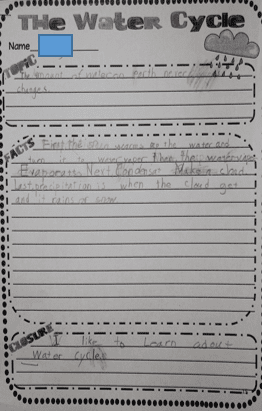 The Water Cycle
Name
TOPIC
The amount of water on earth never
changes.
FACTS
First, the sun warms up the water and
turn it to water vapor Then the watervapor
Evaporates Next Condensat Make a cloud
Last precipitation is when the cloud get
and it rains or snow.
CLOSURE
I like to Learn about
Water cycles